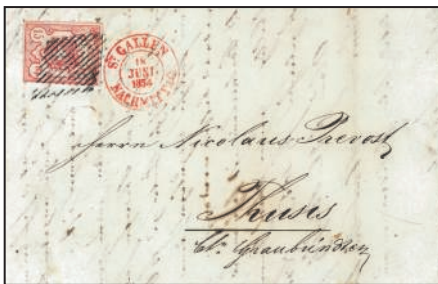 St GALLEN
18
JUNI.
1853
NACHMITTAG
Herrn Nicolaus Prevost
Thusis
Ct. Graubündten